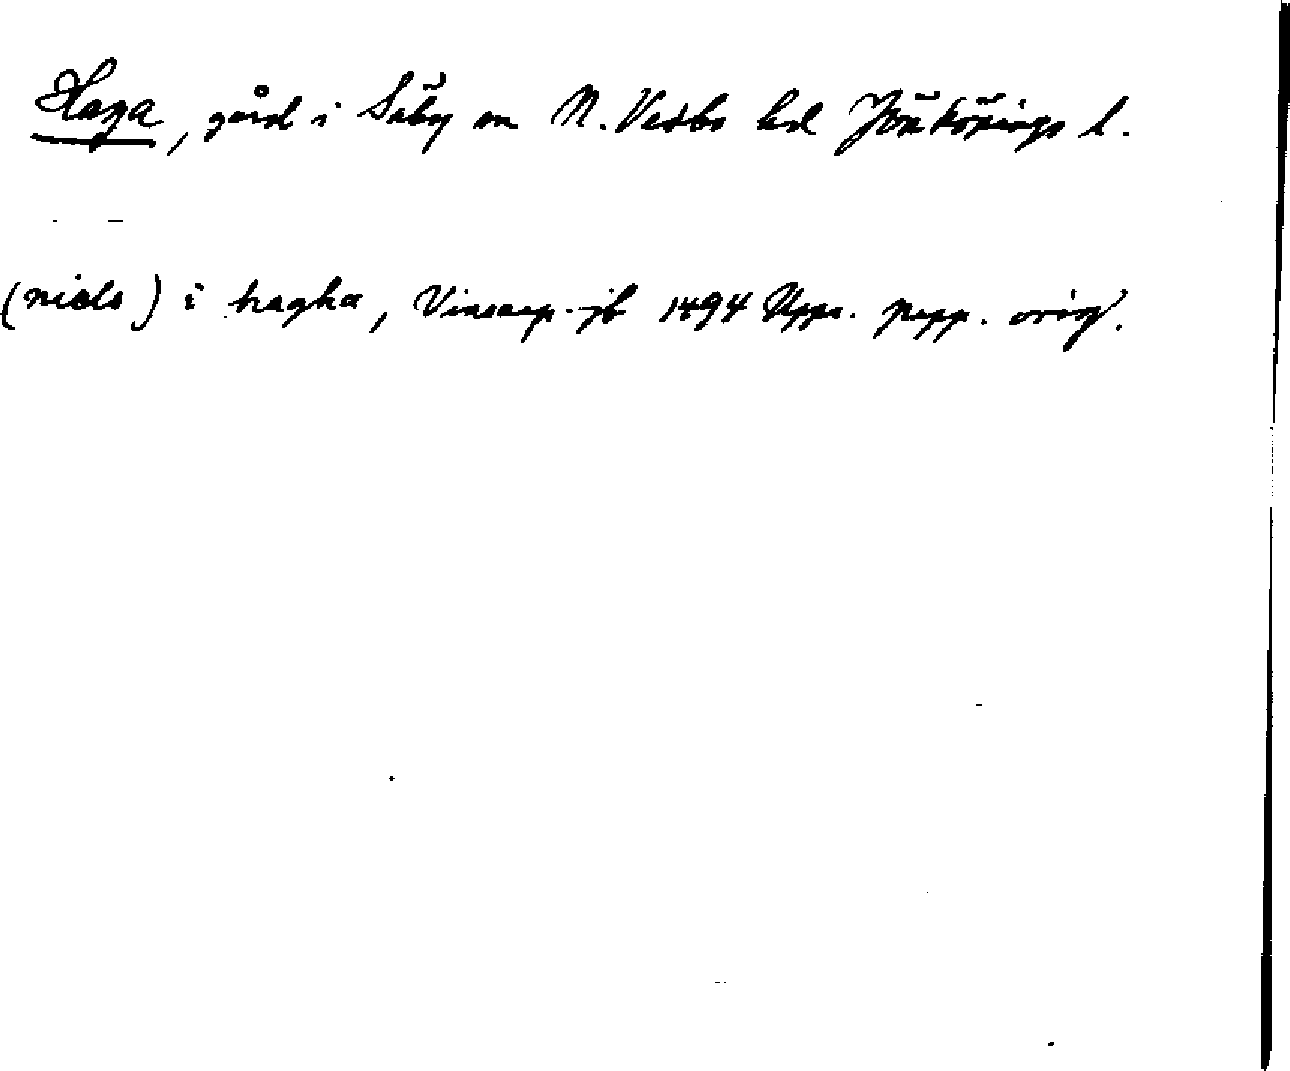 Haga, gård i Säby sn N. Vedbo hd Jönköpings l.
(niels) i hagha, Vinsarp-jb 1494 Upps. papp. orig.